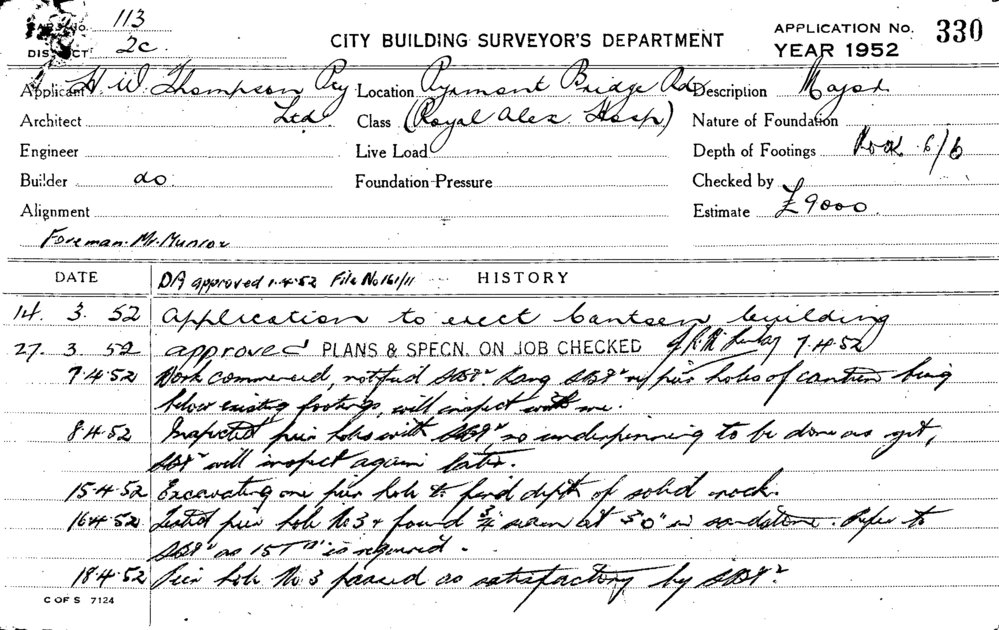 113
DISTRICT 2c.
CITY BUILDING SURVEYOR'S DEPARTMENT
APPLICATION No. 330
YEAR 1952
Applicant H. W. Thompson Pty Location Pyrmont Bridge Rd Description Major
Architect Ltd Class (Royal Alex. Hosp) Nature of Foundation
Engineer Live Load Depth of Footings Rock 6/6
Builder do. Foundation Pressure Checked by
Alignment Estimate £9000.
Foreman Mr. Munroe
DATE DA approved 1.4.52 File No 161/11 HISTORY
14. 3. 52 Application to erect Canteen building
27. 3. 52 approved PLANS & SPECN. ON JOB CHECKED 7.4.52
7.4.52 Work commenced, notified Rang re pier holes of canteen being
below existing footings, will inspect with me.
8.4.52 Inspected pier holes with no underpinning to be done as yet,
will inspect again later.
15.4.52 Excavating one pier hole to find depth of solid rock.
16.4.52 Tested pier hole No 3 & found seam at 3'0" in sandstone. Refer to
as 15T is required.
18.4.52 Pier hole No 3 passed as satisfactory by
C OF S 7124